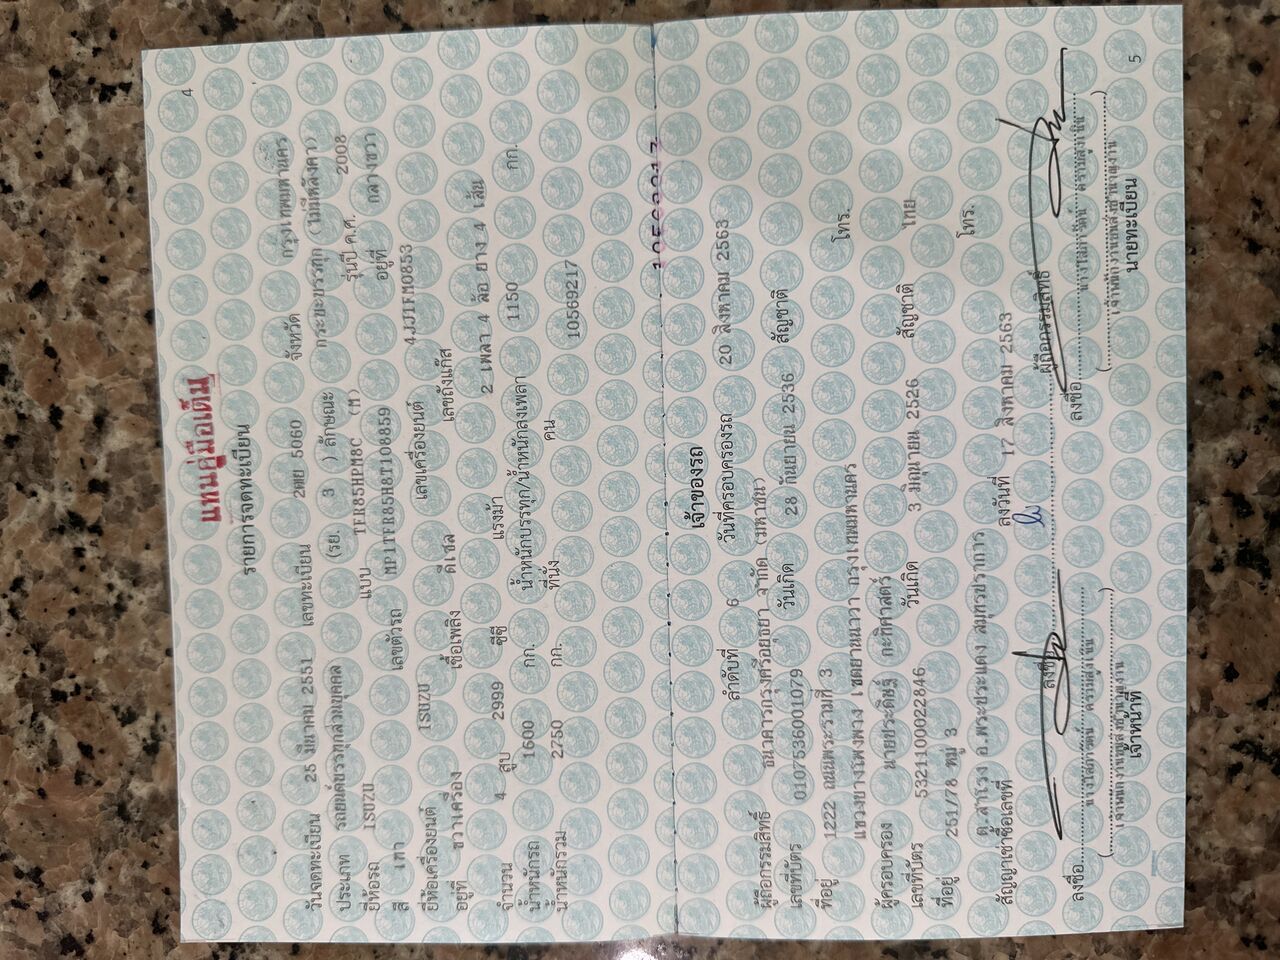 4
แทนคู่มือเดิม
รายการจดทะเบียน
วันจดทะเบียน 25 มีนาคม 2551 เลขทะเบียน 2ฒย 5060 จังหวัด กรุงเทพมหานคร
ประเภท รถยนต์บรรทุกส่วนบุคคล (รย. 3 ) ลักษณะ กระบะบรรทุก (ไม่มีหลังคา)
ยี่ห้อรถ ISUZU แบบ TFR85HPM8C (M) รุ่นปี ค.ศ. 2008
สี เทา เลขตัวรถ MP1TFR85H8T108859 อยู่ที่ กลางขวา
ยี่ห้อเครื่องยนต์ ISUZU เลขเครื่องยนต์ 4JJ1FM0853
อยู่ที่ ขวาเครื่อง เชื้อเพลิง ดีเซล เลขถังแก๊ส
จำนวน 4 สูบ 2999 ซีซี แรงม้า 2 เพลา 4 ล้อ ยาง 4 เส้น
น้ำหนักรถ 1600 กก. น้ำหนักบรรทุก/น้ำหนักลงเพลา 1150 กก.
น้ำหนักรวม 2750 กก. ที่นั่ง คน 10569217
เจ้าของรถ
ลำดับที่ 6 วันที่ครอบครองรถ 20 สิงหาคม 2563
ผู้ถือกรรมสิทธิ์ ธนาคารกรุงศรีอยุธยา จำกัด (มหาชน)
เลขที่บัตร 0107536001079 วันเกิด 28 กันยายน 2536 สัญชาติ
ที่อยู่ 1222 ถนนพระรามที่ 3
แขวงบางโพงพาง เขตยานนาวา กรุงเทพมหานคร โทร.
ผู้ครอบครอง นายประดิษฐ์ กะทิศาสตร์
เลขที่บัตร 5321100022846 วันเกิด 3 มิถุนายน 2526 สัญชาติ ไทย
ที่อยู่ 251/78 หมู่ 3
ต.สำโรง อ.พระประแดง สมุทรปราการ โทร.
สัญญาเช่าซื้อเลขที่ ลงวันที่ 17 สิงหาคม 2563
ลงชื่อ ผู้ถือกรรมสิทธิ์
ลงชื่อ ลงชื่อ
เจ้าพนักงานขนส่งชำนาญงาน เจ้าพนักงานขนส่งชำนาญงาน
เจ้าหน้าที่ นายทะเบียน
5